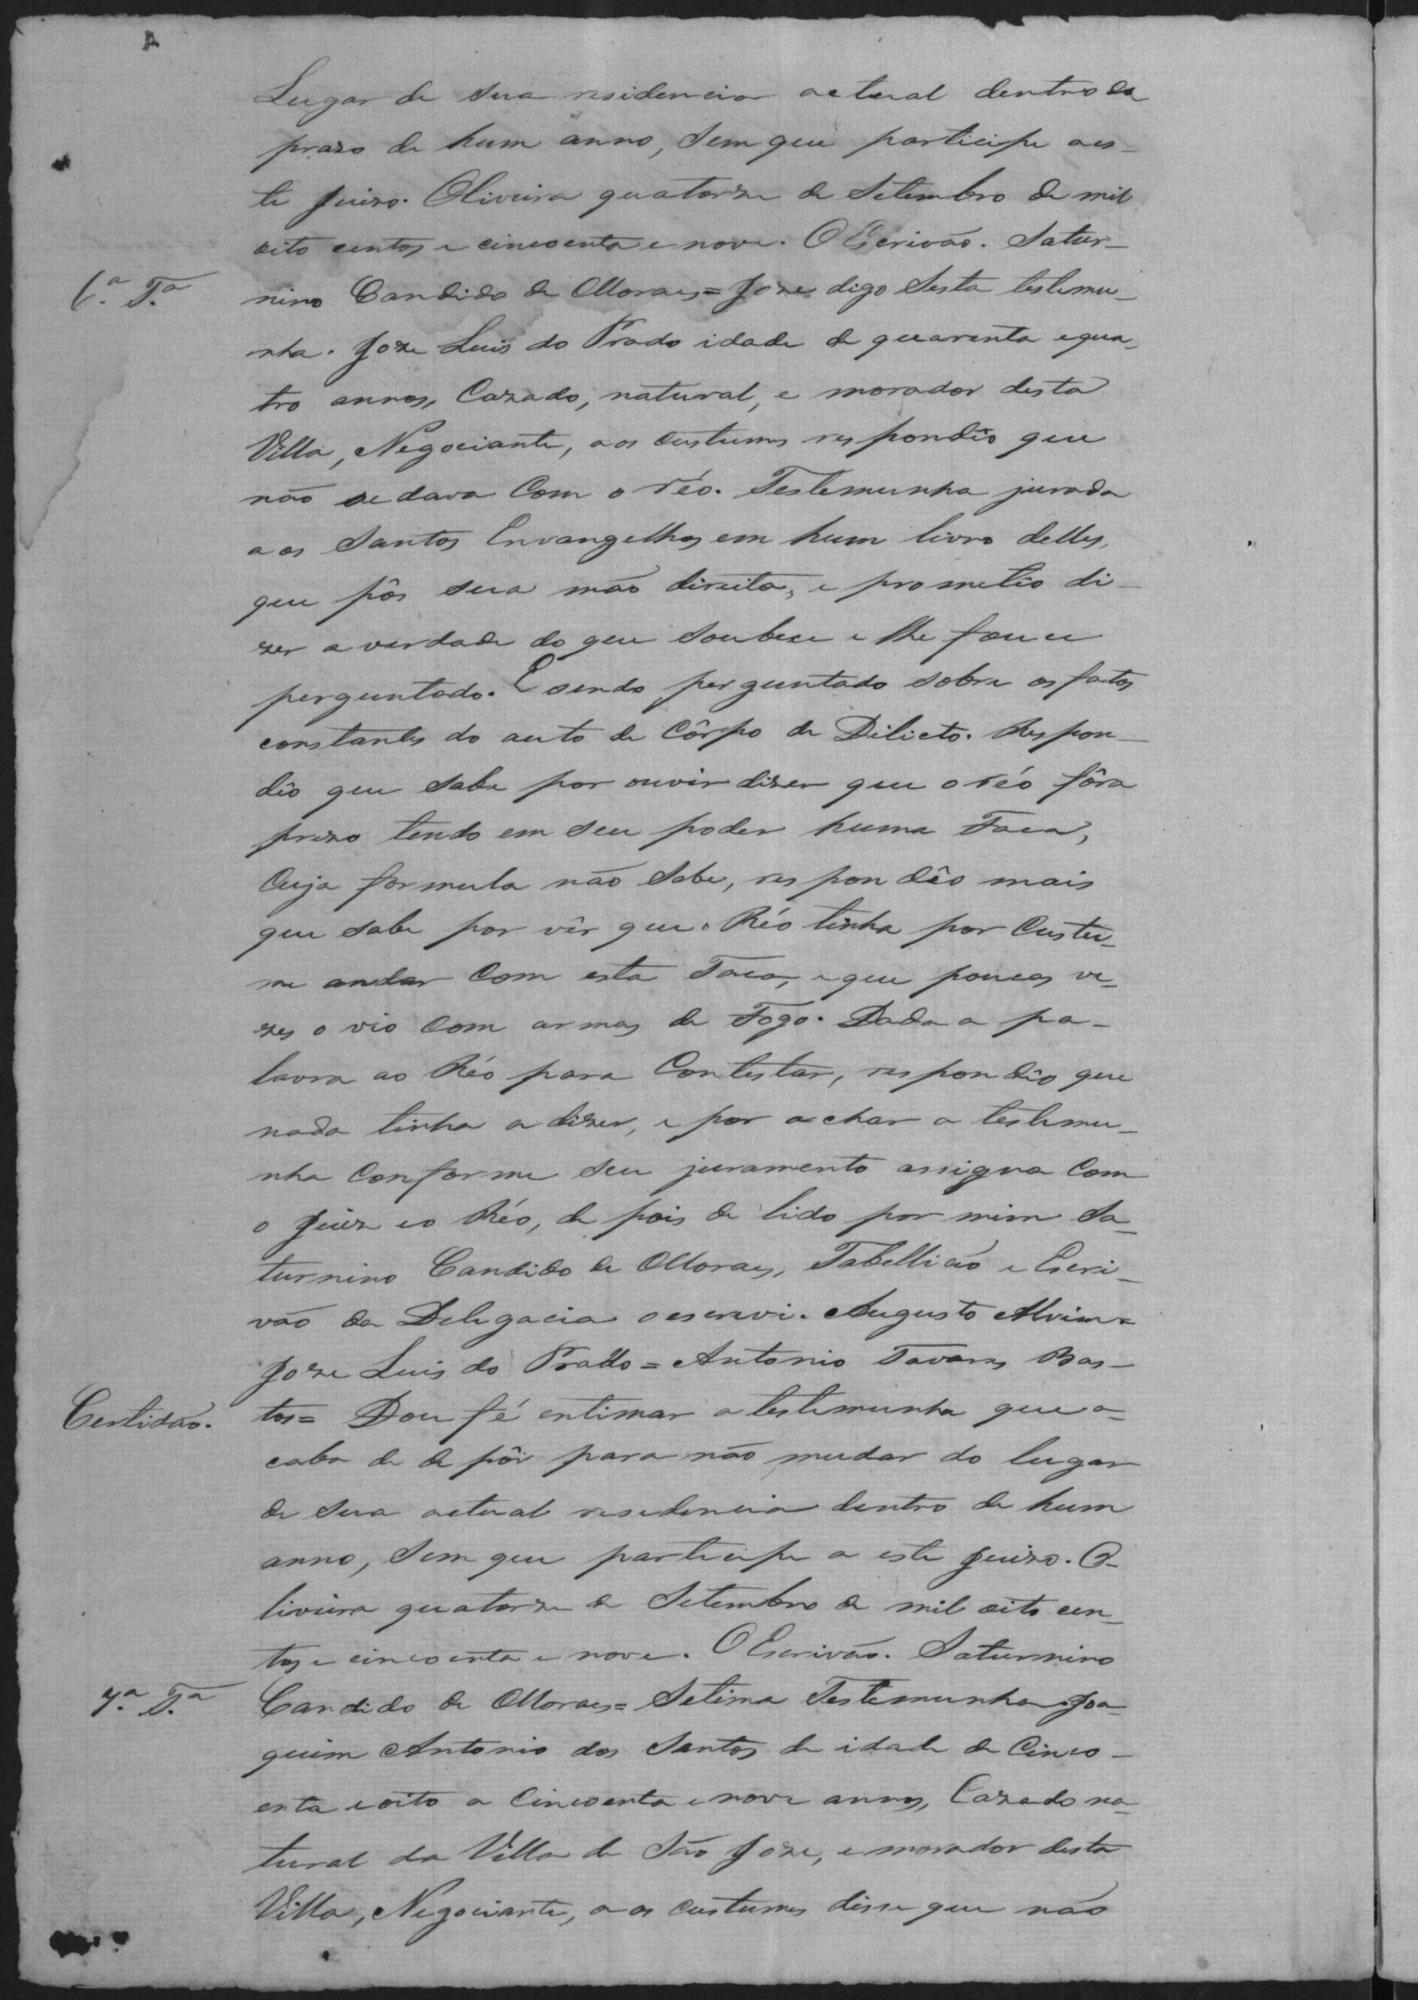 Lugar de sua residencia actual dentro do
praso de hum anno, sem que participe a es-
te juizo. Oliveira quatorze de Setembro de mil
oito centos e cincoenta e nove. O Escrivão. Satur-
6.ª T.ª
nino Candido de Moraes = Joze digo Sesta testemu-
nha. Joze Luis do Prado idade de quarenta e qua-
tro annos, Cazado, natural, e morador desta
Villa, Negociante, aos custumes respondêo que
não se dava Com o réo. Testemunha jurada
aos Santos Envangelhos em hum livro delles,
que pôs sua mão direita, e prometio di-
zer a verdade do que soubece e lhe fouce
perguntado. E sendo perguntado sobre os fatos
constantes do auto de Côrpo de Dilicto. Respon-
dêo que sabe por ouvir dizer que o réo fôra
prezo tendo em seu poder huma Faca,
Cuja formula não sabe, respondêo mais
que sabe por vêr que o Réo tinha por Custu-
me andar Com esta Faca, e que poucas ve-
zes o vio Com armas de Fogo. Dada a pa-
lavra ao Réo para Contestar, respondêo que
nada tinha a dizer, e por achar a testemu-
nha Conforme seu juramento assigna Com
o Juiz e o Réo, de pois de lido por mim Sa-
turnino Candido de Moraes, Tabellião e Escri-
vão da Delegacia o escrevi. Augusto Alvim =
Joze Luis do Prado = Antonio Tavares Bas-
Certidão.
tos = Dou fé entimar a testemunha que a-
caba de de pôr para não mudar do lugar
de sua actual residencia dentro de hum
anno, sem que participe a este juizo. O-
liveira quatorze de Setembro de mil oito cen-
tos e cincoenta e nove. O Escrivão. Saturnino
7.ª T.ª
Candido de Moraes = Setima Testemunha Joa-
quim Antonio dos Santos de idade de Cinco-
enta e oito a Cincoenta e nove annos, Cazado na-
tural da Villa de São Joze, e morador desta
Villa, Negociante, a os custumes disse que não